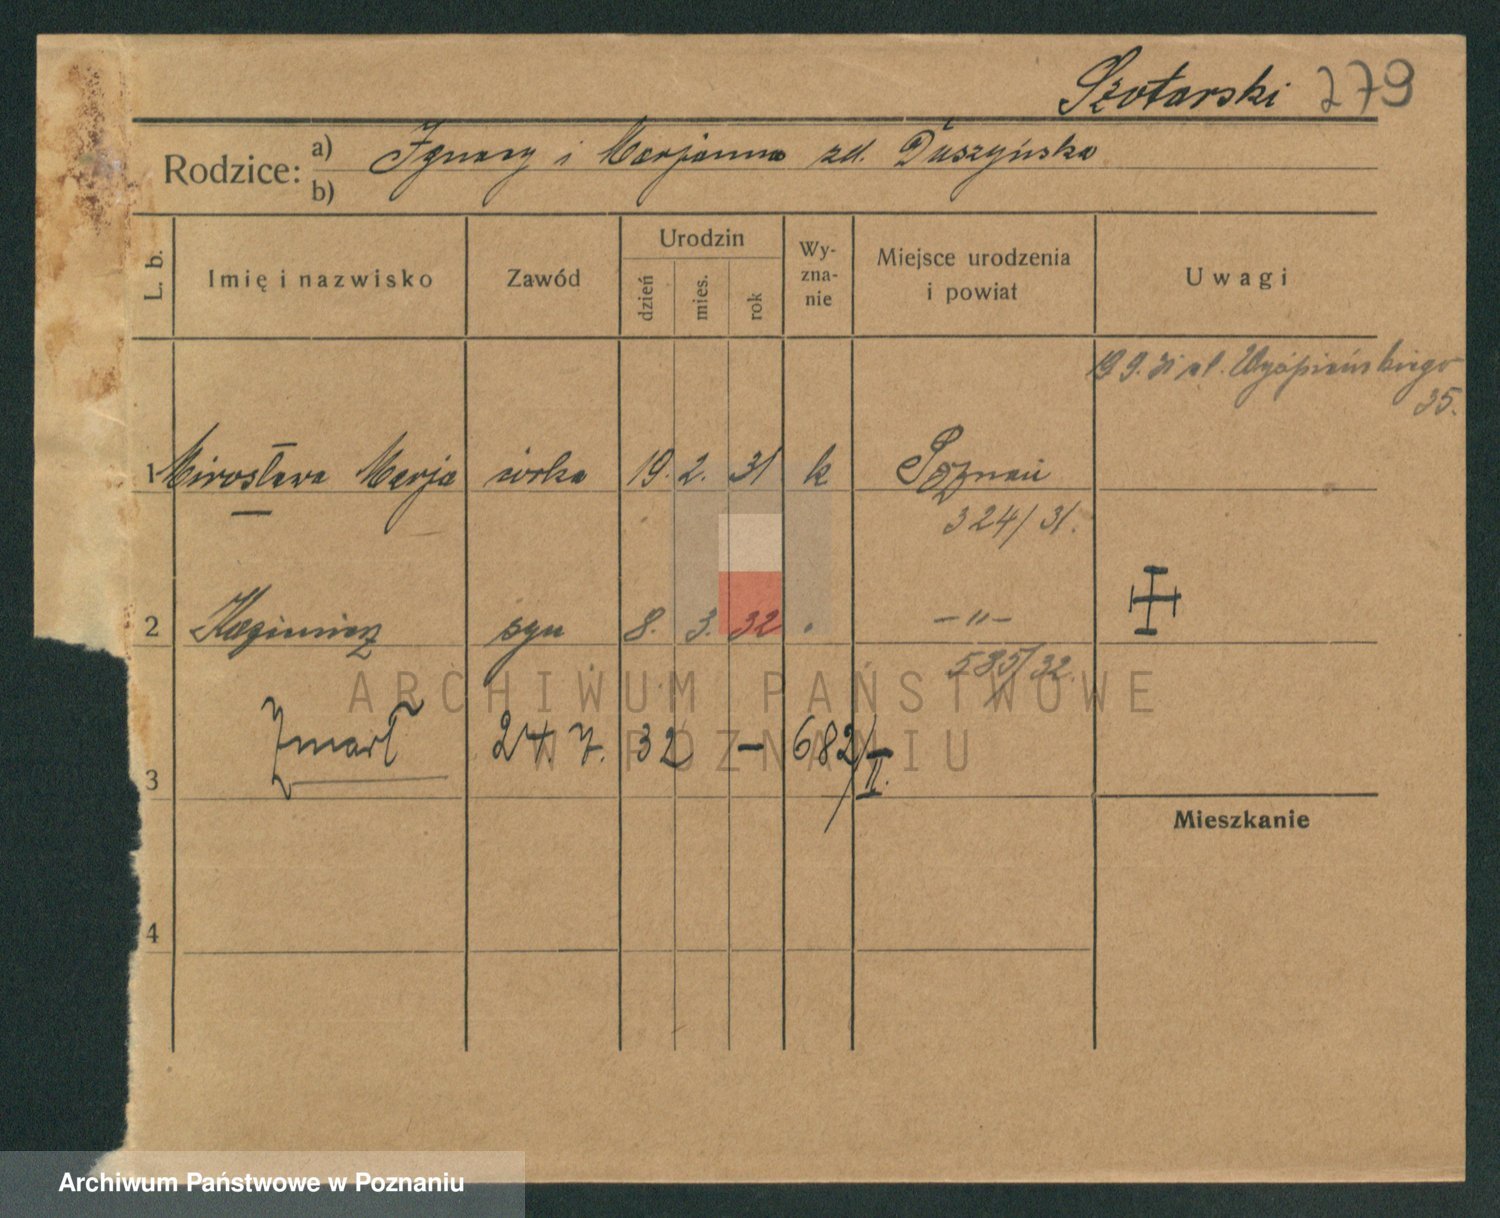 Szołarski 279
Rodzice: a) Ignacy i Marjanna zd. Duszyńska
b)
L. b. Imię i nazwisko Zawód Urodzin dzień mies. rok Wy-zna-nie Miejsce urodzenia i powiat Uwagi
19.9.31 ul. Wyspiańskiego
35.
1 Mirosława Marja córka 19. 2. 31 k Poznań
324/31.
2 Kazimierz syn 8. 3. 32 " —"—
585/32.
3 Zmarł 24. 7. 32 — 682/II.
Mieszkanie
4
ARCHIWUM PAŃSTWOWE
W POZNANIU
Archiwum Państwowe w Poznaniu